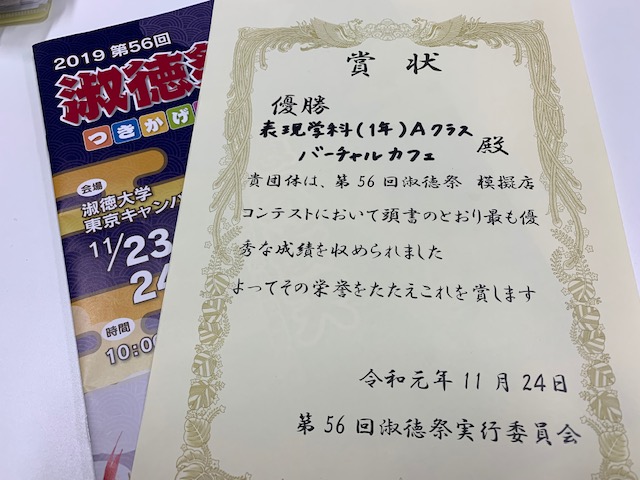 2019 第56回
淑徳祭
つきかげ
会場
淑徳大学
東京キャンパ
11/23
24
時間
10:00
賞状
優勝
表現学科(1年)Aクラス
バーチャルカフェ 殿
貴団体は、第56回淑徳祭 模擬店
コンテストにおいて頭書のとおり最も優
秀な成績を収められました
よってその栄誉をたたえこれを賞します
令和元年11月24日
第56回淑徳祭実行委員会